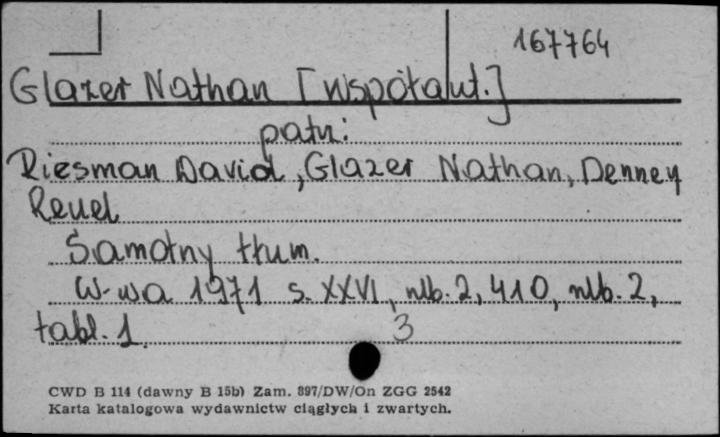 167764
Glazer Nathan [współaut.]
patrz:
Riesman David, Glazer Nathan, Denney
Reuel
Samotny tłum.
W-wa 1971 s. XXVI, nlb. 2, 410, nlb. 2,
tabl. 1. 3
CWD B 114 (dawny B 15b) Zam. 897/DW/On ZGG 2542
Karta katalogowa wydawnictw ciągłych i zwartych.